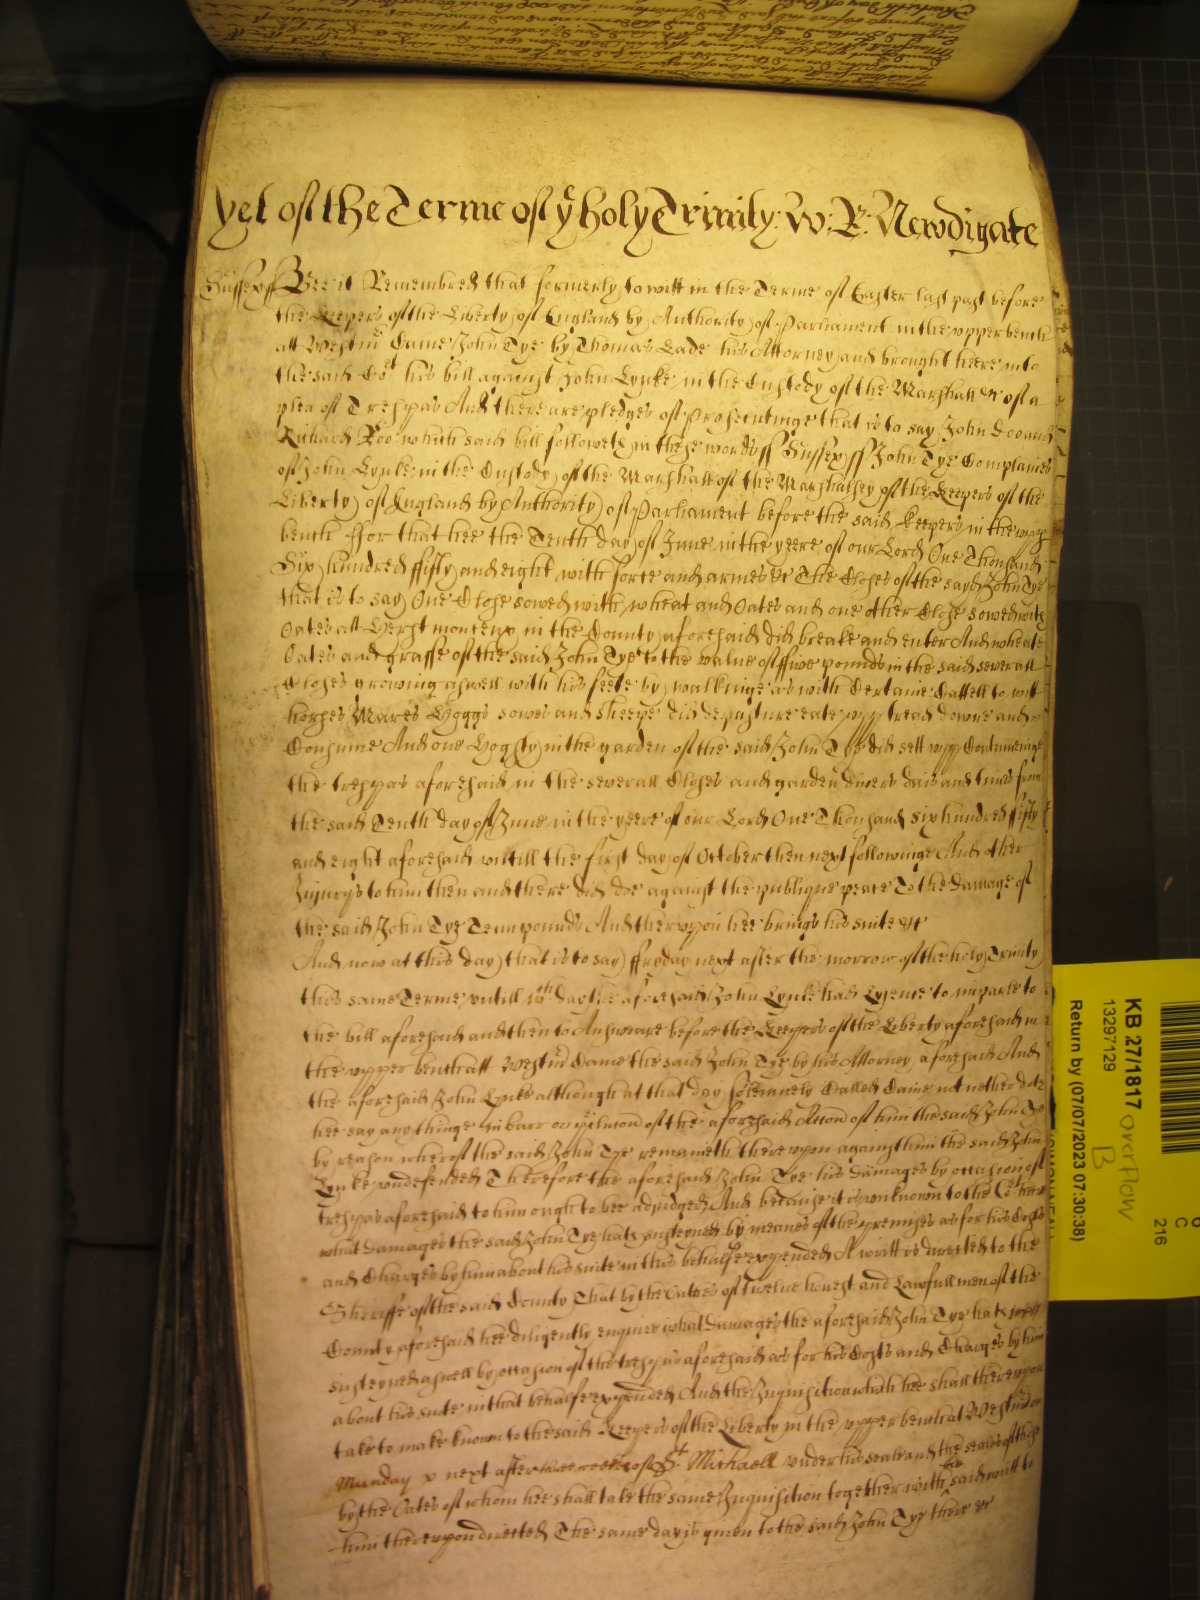 yet of the Terme of ye holy Trinity: W: R: Newdigate
Sussex ss Bee it Remembred that formerly to witt in the Terme of Easter last past before
the Keepers of the Liberty of England by Authority of Parliament in the upper bench
att Westmr Came John Tye by Thomas Cade his Attorney and brought heere into
the said Cort his bill against John Lynke in the Custody of the Marshall &c of a
plea of Trespas And there are pledges of prosecutinge that is to say John Doo and
Richard Roo which said bill followeth in these words ss Sussex ss John Tye Complaines
of John Lynke in the Custody of the Marshall of the Marshalsey of the Keepers of the
Liberty of England by Authority of Parliament before the said keepers in the upp
bench ffor that hee the Tenth day of June in the yeere of our Lord One Thousand
Six hundred ffifty and eight with force and armes &c The Closes of the sayd John Tye
that is to say One Close sowed with wheat and Oates and one other Close sowed with
Oates att in the County aforesaid did breake and enter And wheate
Oates and grasse of the said John Tye to the value of ffive pounds in the said severall
Closes growing aswell with his feete by walkinge as with Certaine Cattell to witt
horses Mares Hoggs sowes and sheepe did depasture eate upp tread downe and
Consume And one Hogsty in the garden of the said John Tye did sett upp Continuinge
the trespas aforesaid in the severall Closes and garden divers dais and times from
the said Tenth day of June in the yeere of our Lord One Thousand six hundred fifty
and eight aforesaid untill the first day of October then next followinge And other
Injuryes to him then and there did doe against the publique peace To the damage of
the said John Tye Tenn pounds And thereuppon hee brings his suite &c
And now at this day that is to say ffryday next after the morrow of the holy Trinity
this same Terme untill wch day the aforesaid John Lynke had Lycence to imparle to
the bill aforesaid and then to Answeare before the Keepers of the Liberty aforesaid in
the upper bench att Westmr Came the said John Tye by his Attorney aforesaid And
the aforesaid John Lynke although at that day solemnely Called Came not nether doth
hee say any thinge in barr or of the aforesaid Accon of him the said John Tye
by reason whereof the said John Tye remaineth thereupon against him the said John
Lynke undefended Therefore the aforesaid John Tye his damages by occasion of
trespas aforesaid to him ought to bee adjudged And because it is unknown to the Cort heere
what damages the said John Tye hath susteyned by meanes of the premises as for his Costs
and Charges by him about his suite in this behalfe expended A writt is directed to the
Sheriffe of the said County That by the Oathes of twelve honest and Lawfull men of the
County aforesaid hee diligently enquire what damages the aforesaid John Tye hath
susteyned aswell by occasion of the trespas aforesaid as for his Costs and Charges by him
about his suite in that behalfe expended And the Inquisition which hee shall thereupon
take to make known to the said Keepers of the Liberty in the upper bench at Westmr on
Munday next after of St Michaell under his seale and the seales of those
by the Oathes of whom hee shall take the same Inquisition together with the said writt to
him thereupon directed The same day is given to the said John Tye there &c
KB 27/1817
13297129
Return by (07/07/2023 07:30:38)
Overflow
B
C
216